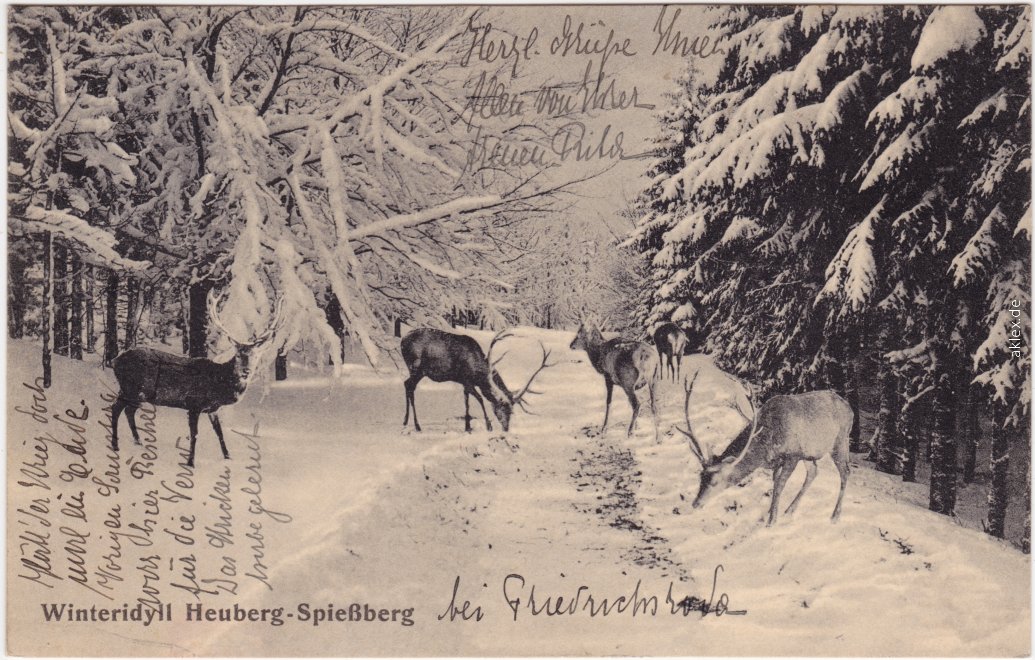 Herzl. Grüße Ihnen
Allen von Ihrer
treuen Rita
Hätt' der Krieg doch
mal ein Ende.
Vorigen Sonnabend
war hier
für die Verw.
Das Stricken
habe gelernt
Winteridyll Heuberg-Spießberg
bei Friedrichroda
aklex.de